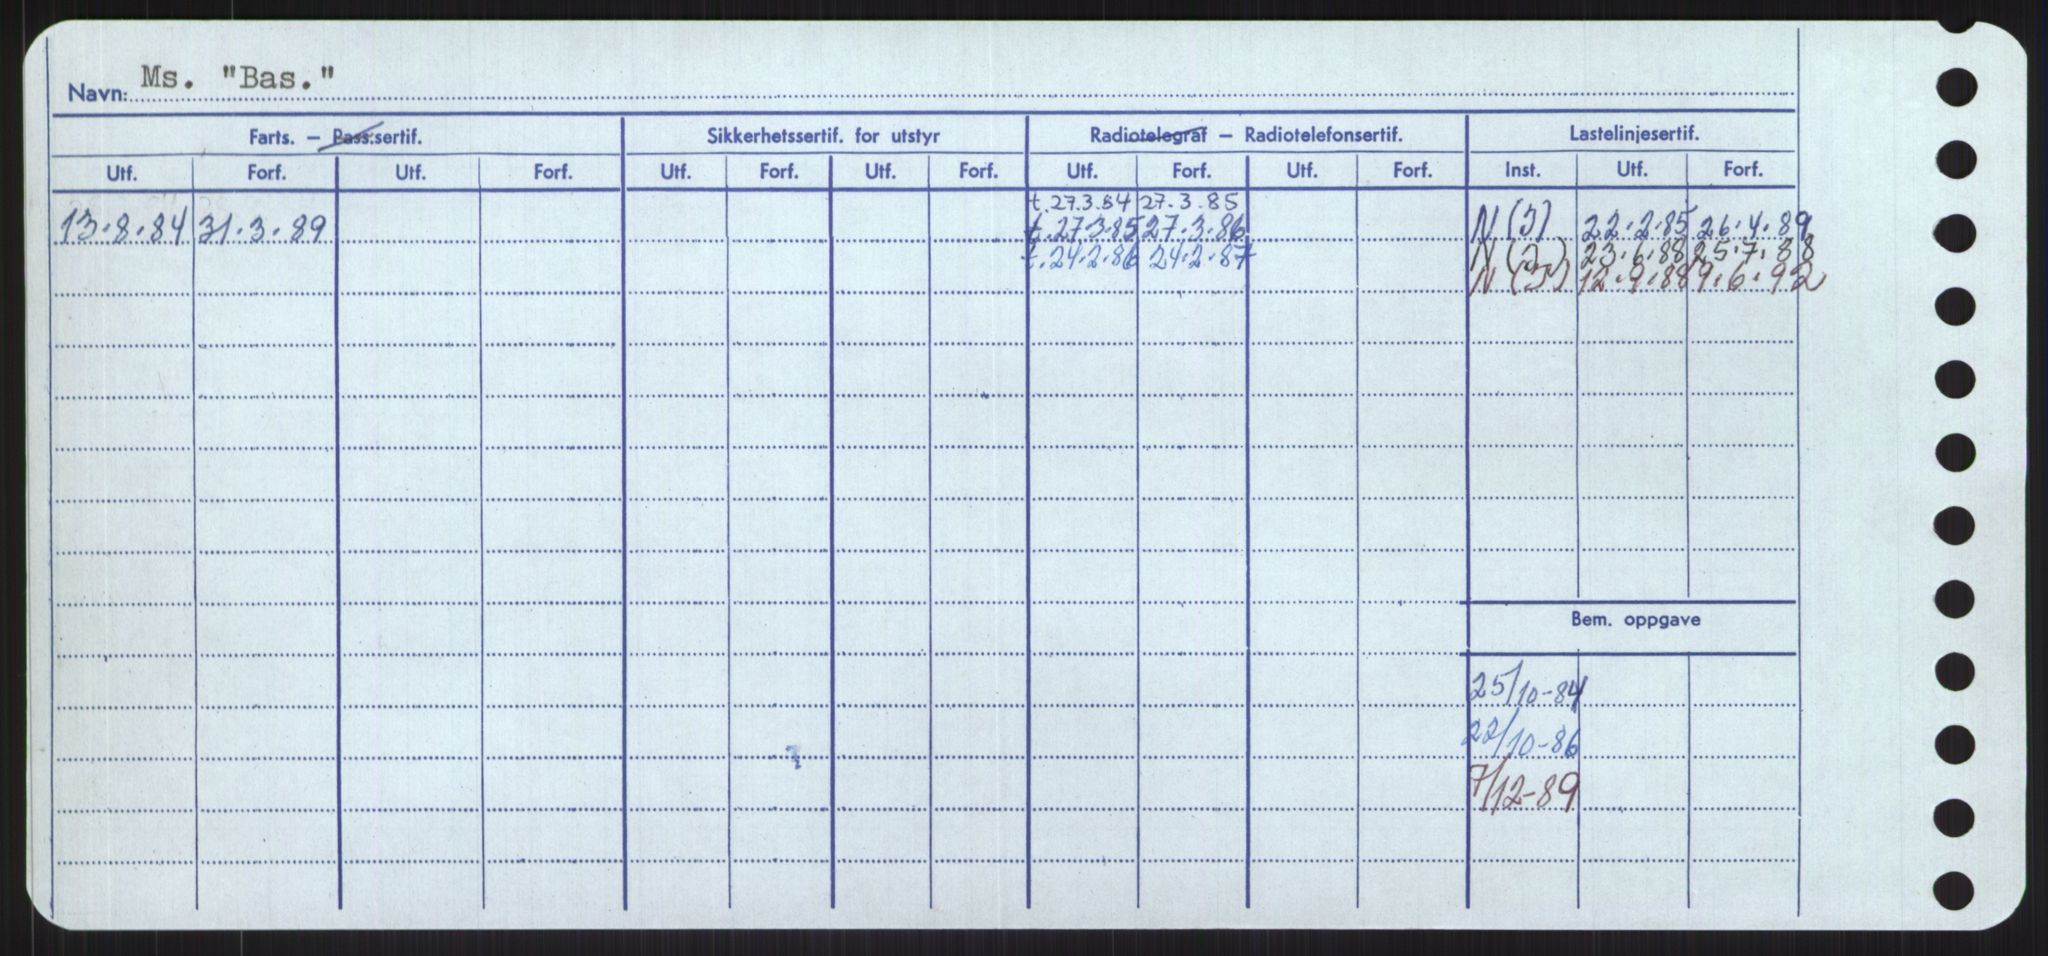 Navn: Ms. "Bas."
Farts. – Pass.sertif. Sikkerhetssertif. for utstyr Radiotelegraf – Radiotelefonsertif. Lastelinjesertif.
Utf. Forf. Utf. Forf. Utf. Forf. Utf. Forf. Utf. Forf. Utf. Forf. Inst. Utf. Forf.
t. 27.3.84 27.3.85
13.8.84 31.3.89 t. 27.3.85 27.3.86 N (J) 22.2.85 26.4.89
t. 24.2.86 24.2.87 N (J) 23.6.88 25.7.88
N (J) 12.9.88 9.6.92
Bem. oppgave
25/10-84
22/10-86
7/12-89